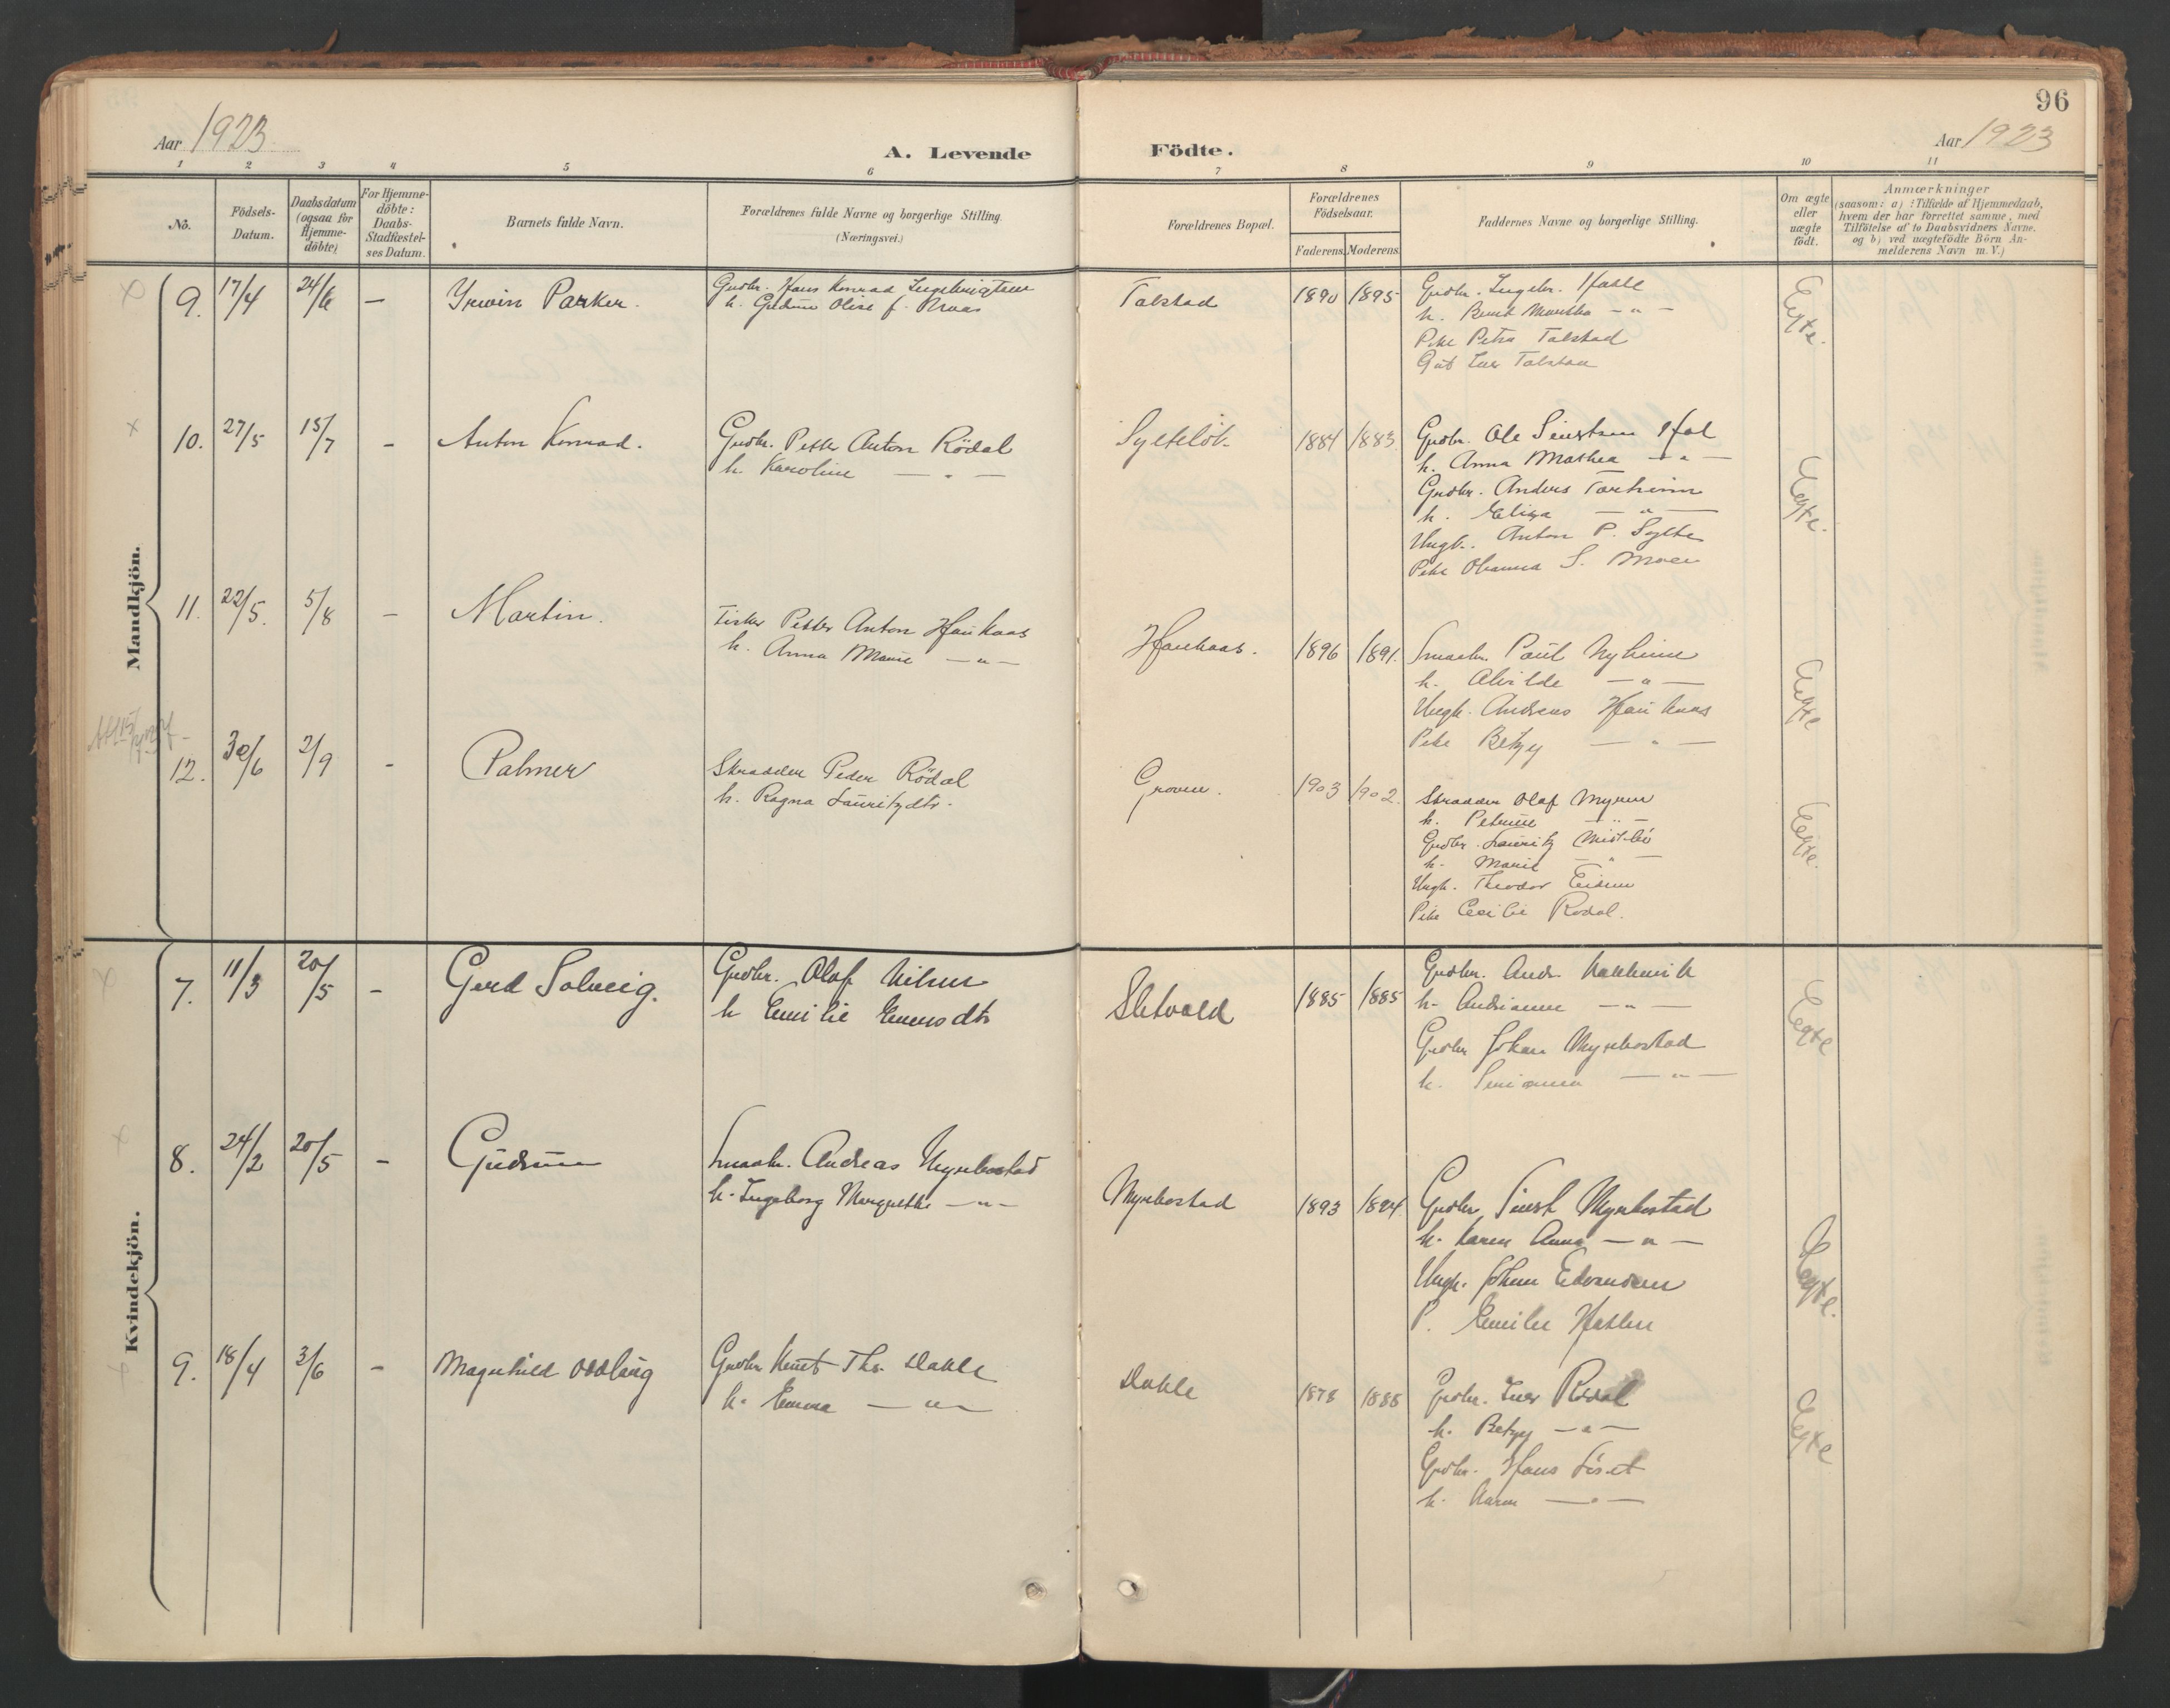 96
Aar 1923
A. Levende Födte.
Aar 1923
1 2 3 4 5 6 7 8 9 10 11
No.
Födsels-Datum.
Daabsdatum (ogsaa for Hjemme-döbte)
For Hjemme-döbte: Daabs-Stadfæstel-ses Datum.
Barnets fulde Navn.
Forældrenes fulde Navne og borgerlige Stilling.
(Næringsvei.)
Forældrenes Bopæl.
Forældrenes Födselsaar.
Faderens. Moderens.
Faddernes Navne og borgerlige Stilling.
Om ægte eller uægte födt.
Anmærkninger
(saasom: a) Tilfælde af Hjemmedaab,
hvem der har forrettet samme, med
Tilföielse af to Daabsvidners Navne.
og b) ved uægtefödte Börn An-
melderens Navn m.V.)
Mandkjön.
9. 17/4 24/6 — Irwin Parker.
Grdbr. Hans Konrad Ingebrigtsen
h. Gudrun Olise f.
Talstad 1890 1895
Grdbr. Ingebr. Hasle
h. Martha — " —
Pike Petra Talstad
Gut Iver Talstad
Ægte.
10. 27/5 15/7 - Anton Konrad.
Grdbr. Petter Anton Rödal
h. Karoline — " —
1884 1883
Grdbr. Ole Sivertsen Hol
h. Anna Mathea — " —
Grdbr. Anders Torheim
h. Eliza — " —
Ungk. Anton P. Sylte
Pike S. Moen
Ægte.
11. 22/5. 5/8 — Martin.
Fisker Petter Anton Haukaas
h. Anna Marie — " —
Haukaas. 1896 1891.
Smaabr. Paul Nyheim
h. Alvilde — " —
Ungk. Andreas Haukaas
Pike Betzy — " —
Ægte
12. 30/6 2/9 - Palmer
Skrædder Peder Rödal
h. Ragna Lauritzdtr.
Groven. 1903 1902.
Skrædder Olaf Myren
h. Petrine — " —
Grdbr. Lauritz
h. Marie — " —
Ungk. Theodor Eidem
Pike Cecilie Rödal.
Ægte.
Kvindekjön.
7. 11/3 20/5 - Gerd Solveig.
Grdbr. Olaf Nilsen
h Emilie Ellensdtr
Sletvold 1885 1885
Grdbr. Andr.
h. Andrianna — " —
Grdbr Johan Myrbostad
h. — " —
Ægte
8. 24/2 20/5 - Gudrun
Smaabr. Andreas Myrbostad
h. Ingeborg Margrethe — " —
Myrbostad 1893 1894
Grdbr. Sivert Myrbostad
h. Karen Anna — " —
Ungk. Johan Edvardsen
P. Emilie Haslen
Ægte.
9. 18/4 3/6 - Magnhild Oddlaug
Grdbr. Knut Thr. Dahle
h. Emma — " —
Dahle 1878 1885
Grdbr. Iver Rödal
h. Betzy — " —
Grdbr. Hans
h. Karen — " —
Ægte